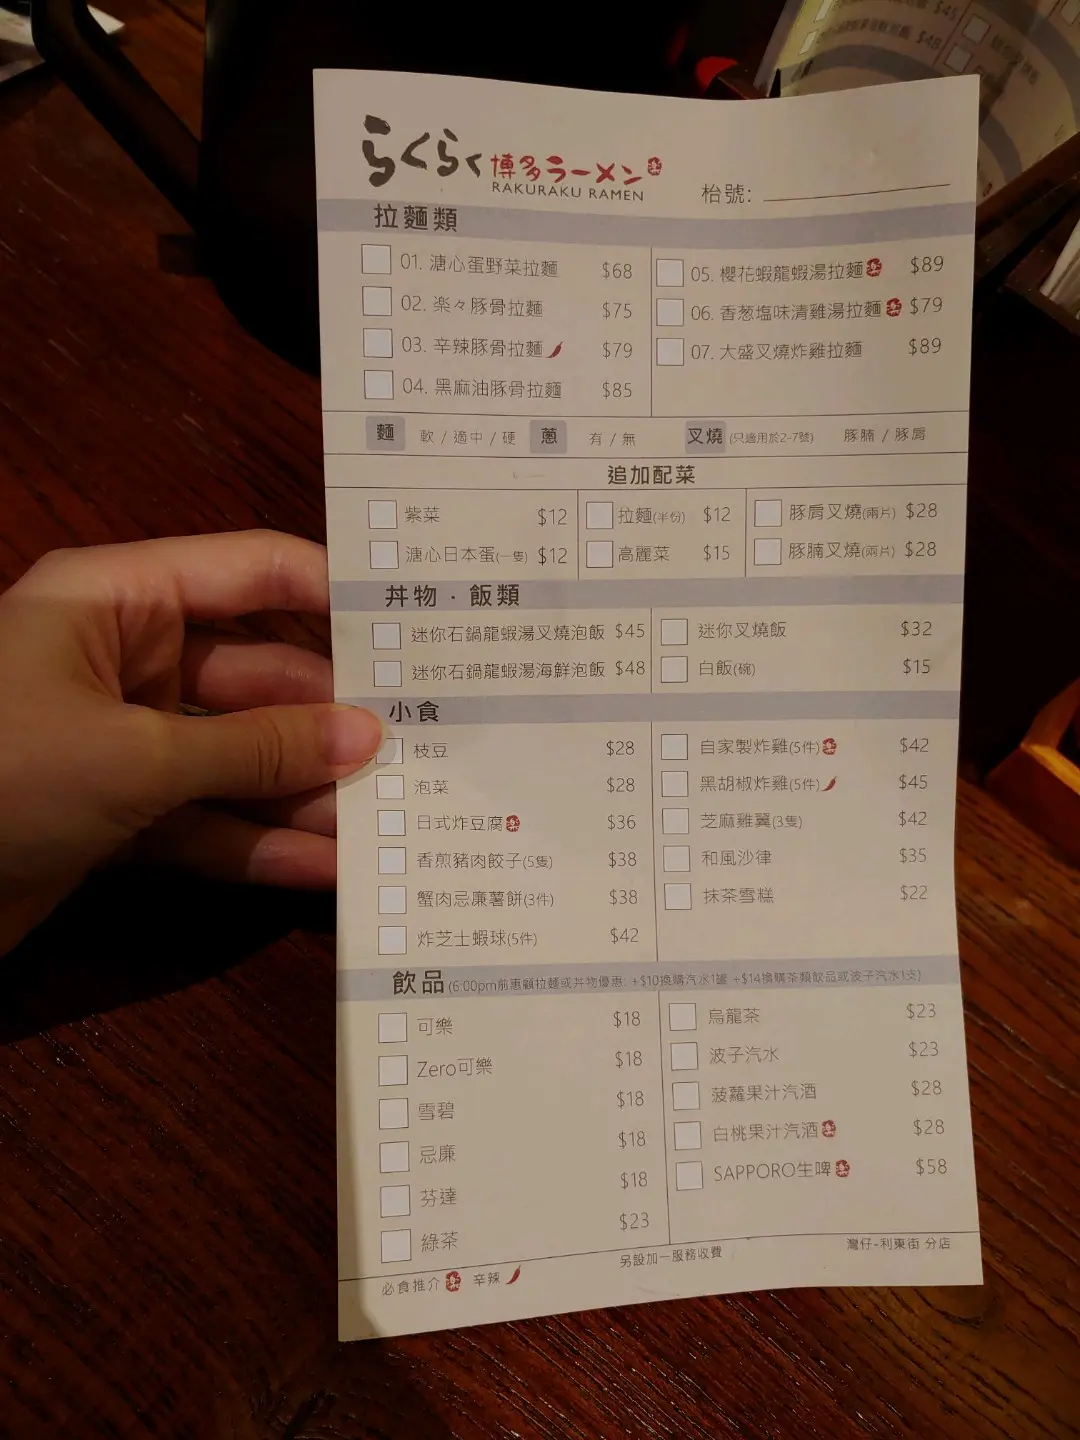 らくらく 博多ラーメン 楽
RAKURAKU RAMEN
枱號:
拉麵類
01. 溏心蛋野菜拉麵 $68
02. 楽々豚骨拉麵 $75
03. 辛辣豚骨拉麵 $79
04. 黑麻油豚骨拉麵 $85
05. 櫻花蝦龍蝦湯拉麵 楽 $89
06. 香葱塩味清雞湯拉麵 楽 $79
07. 大盛叉燒炸雞拉麵 $89
麵 軟 / 適中 / 硬 蔥 有 / 無 叉燒 (只適用於2-7號) 豚腩 / 豚肩
追加配菜
紫菜 $12
溏心日本蛋(一隻) $12
拉麵(半份) $12
高麗菜 $15
豚肩叉燒(兩片) $28
豚腩叉燒(兩片) $28
丼物 · 飯類
迷你石鍋龍蝦湯叉燒泡飯 $45
迷你石鍋龍蝦湯海鮮泡飯 $48
迷你叉燒飯 $32
白飯(碗) $15
小食
枝豆 $28
泡菜 $28
日式炸豆腐 楽 $36
香煎豬肉餃子(5隻) $38
蟹肉忌廉薯餅(3件) $38
炸芝士蝦球(5件) $42
自家製炸雞(5件) 楽 $42
黑胡椒炸雞(5件) $45
芝麻雞翼(3隻) $42
和風沙律 $35
抹茶雪糕 $22
飲品 (6:00pm前惠顧拉麵或丼物優惠: +$10換購汽水1罐 +$14換購茶類飲品或波子汽水1支)
可樂 $18
Zero可樂 $18
雪碧 $18
忌廉 $18
芬達 $18
綠茶 $23
烏龍茶 $23
波子汽水 $23
菠蘿果汁汽酒 $28
白桃果汁汽酒 楽 $28
SAPPORO生啤 楽 $58
必食推介 楽 辛辣
另設加一服務收費
灣仔-利東街 分店
$45
$48